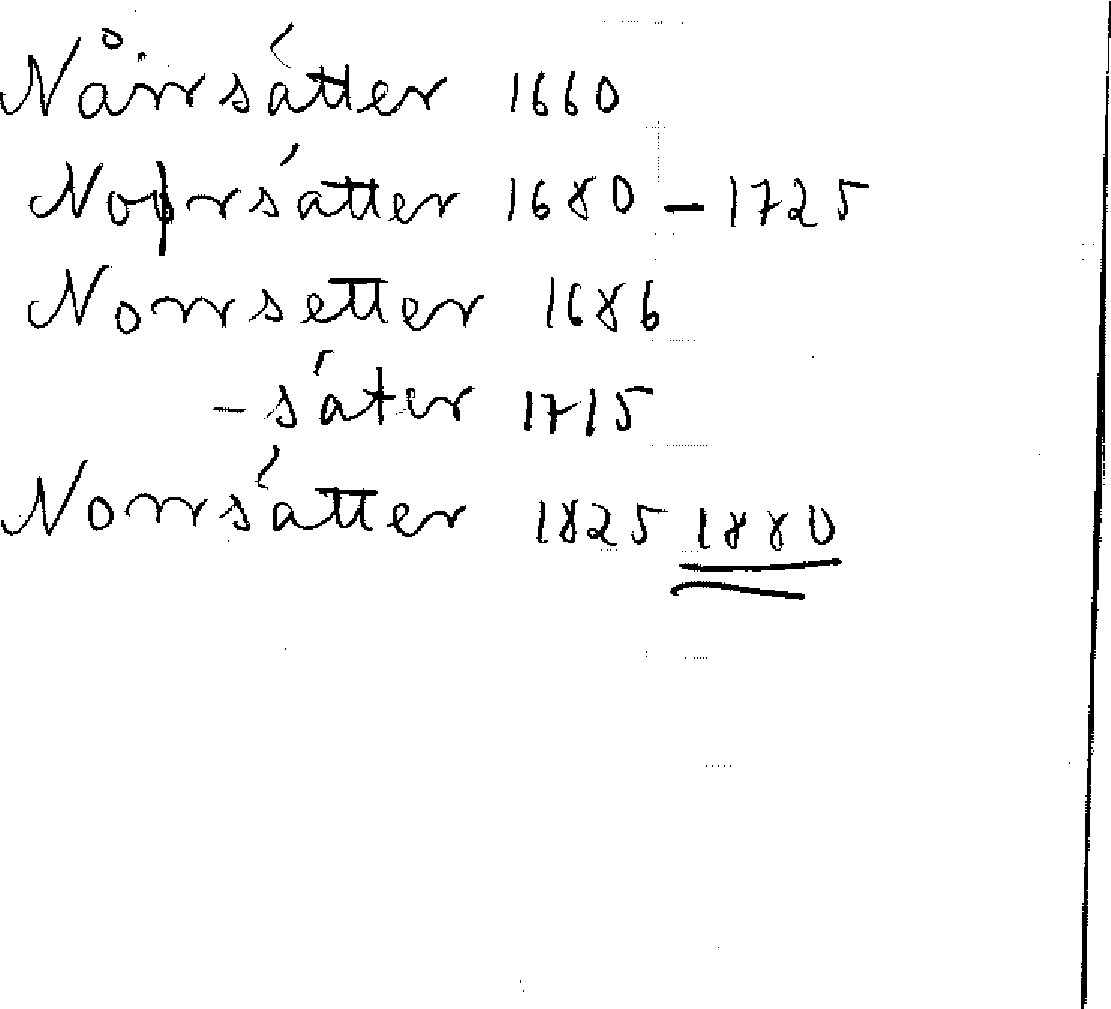 Nårrsätter 1660
Norrsätter 1680 – 1725
Norrsetter 1686
– säter 1715
Norrsätter 1825 1880